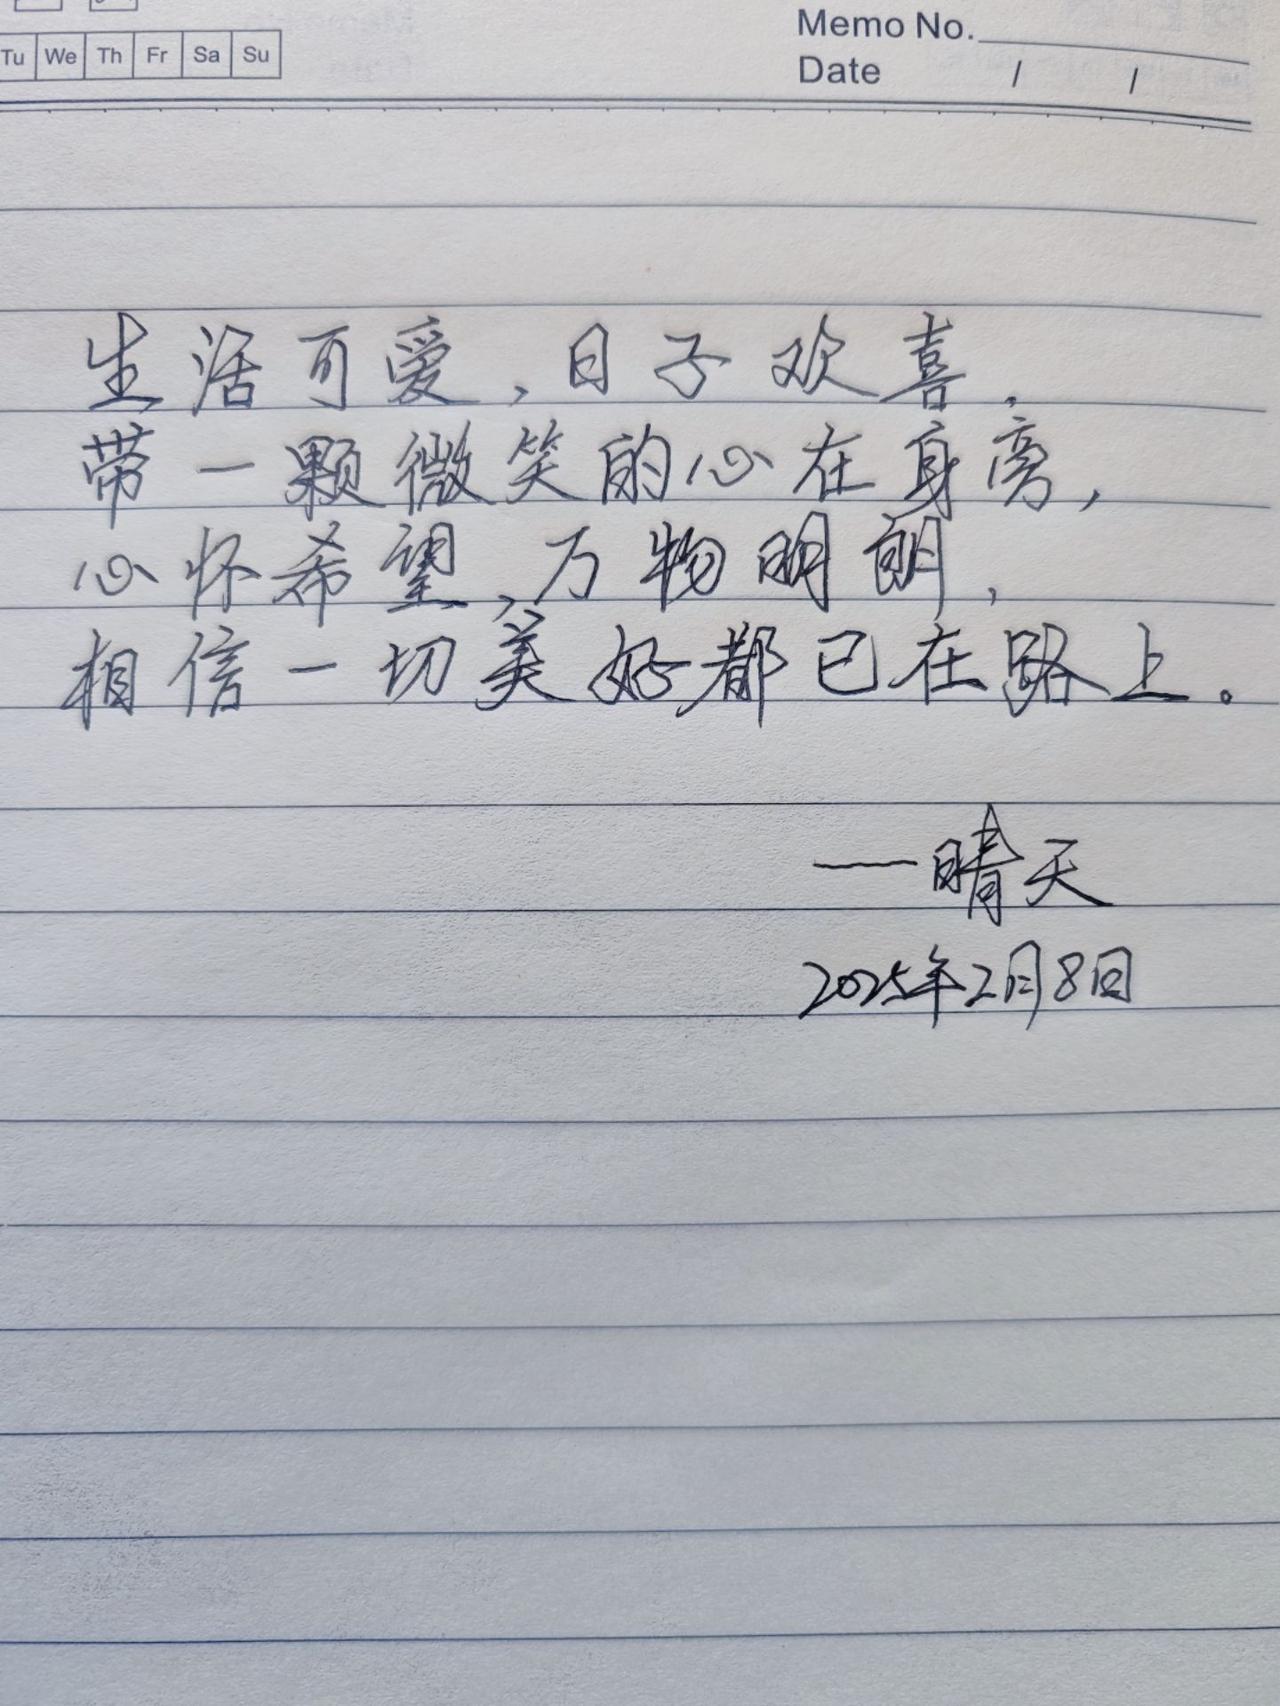 Memo No.
Tu We Th Fr Sa Su
Date / /
生活可爱,日子欢喜,
带一颗微笑的心在身旁,
心怀希望,万物明朗,
相信一切美好都已在路上。
——晴天
2025年2月8日